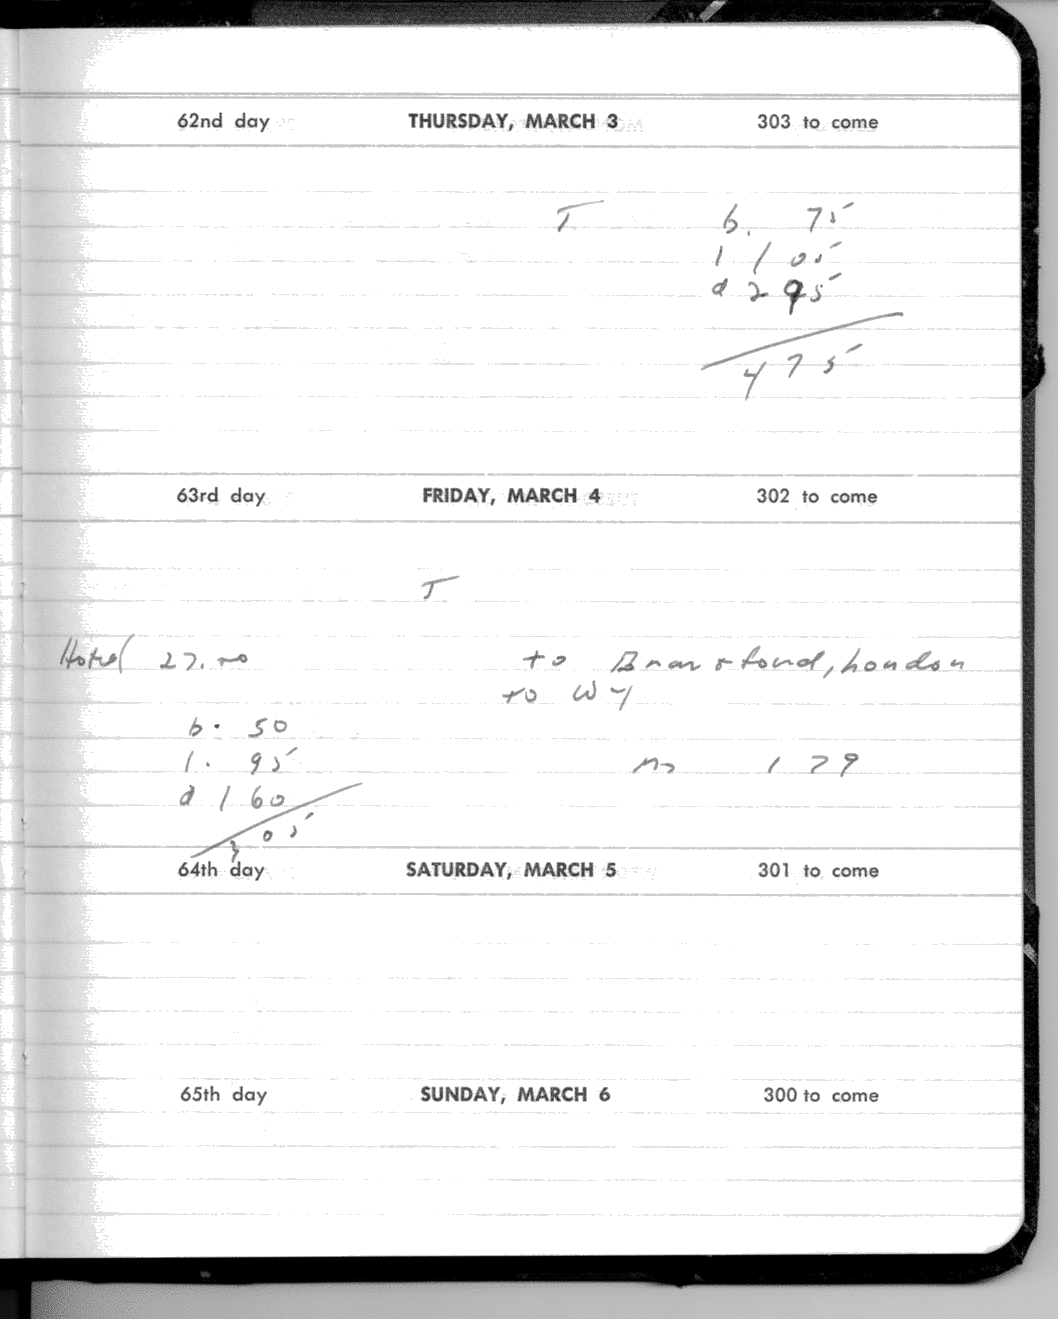 62nd day THURSDAY, MARCH 3 303 to come
T b. 75
l 1 05
d 2 95
4 75
63rd day FRIDAY, MARCH 4 302 to come
T
Hotel 27.00 to Brantford, London
to WY
b. 50
l. 95 179
d 1 60
3 05
64th day SATURDAY, MARCH 5 301 to come
65th day SUNDAY, MARCH 6 300 to come